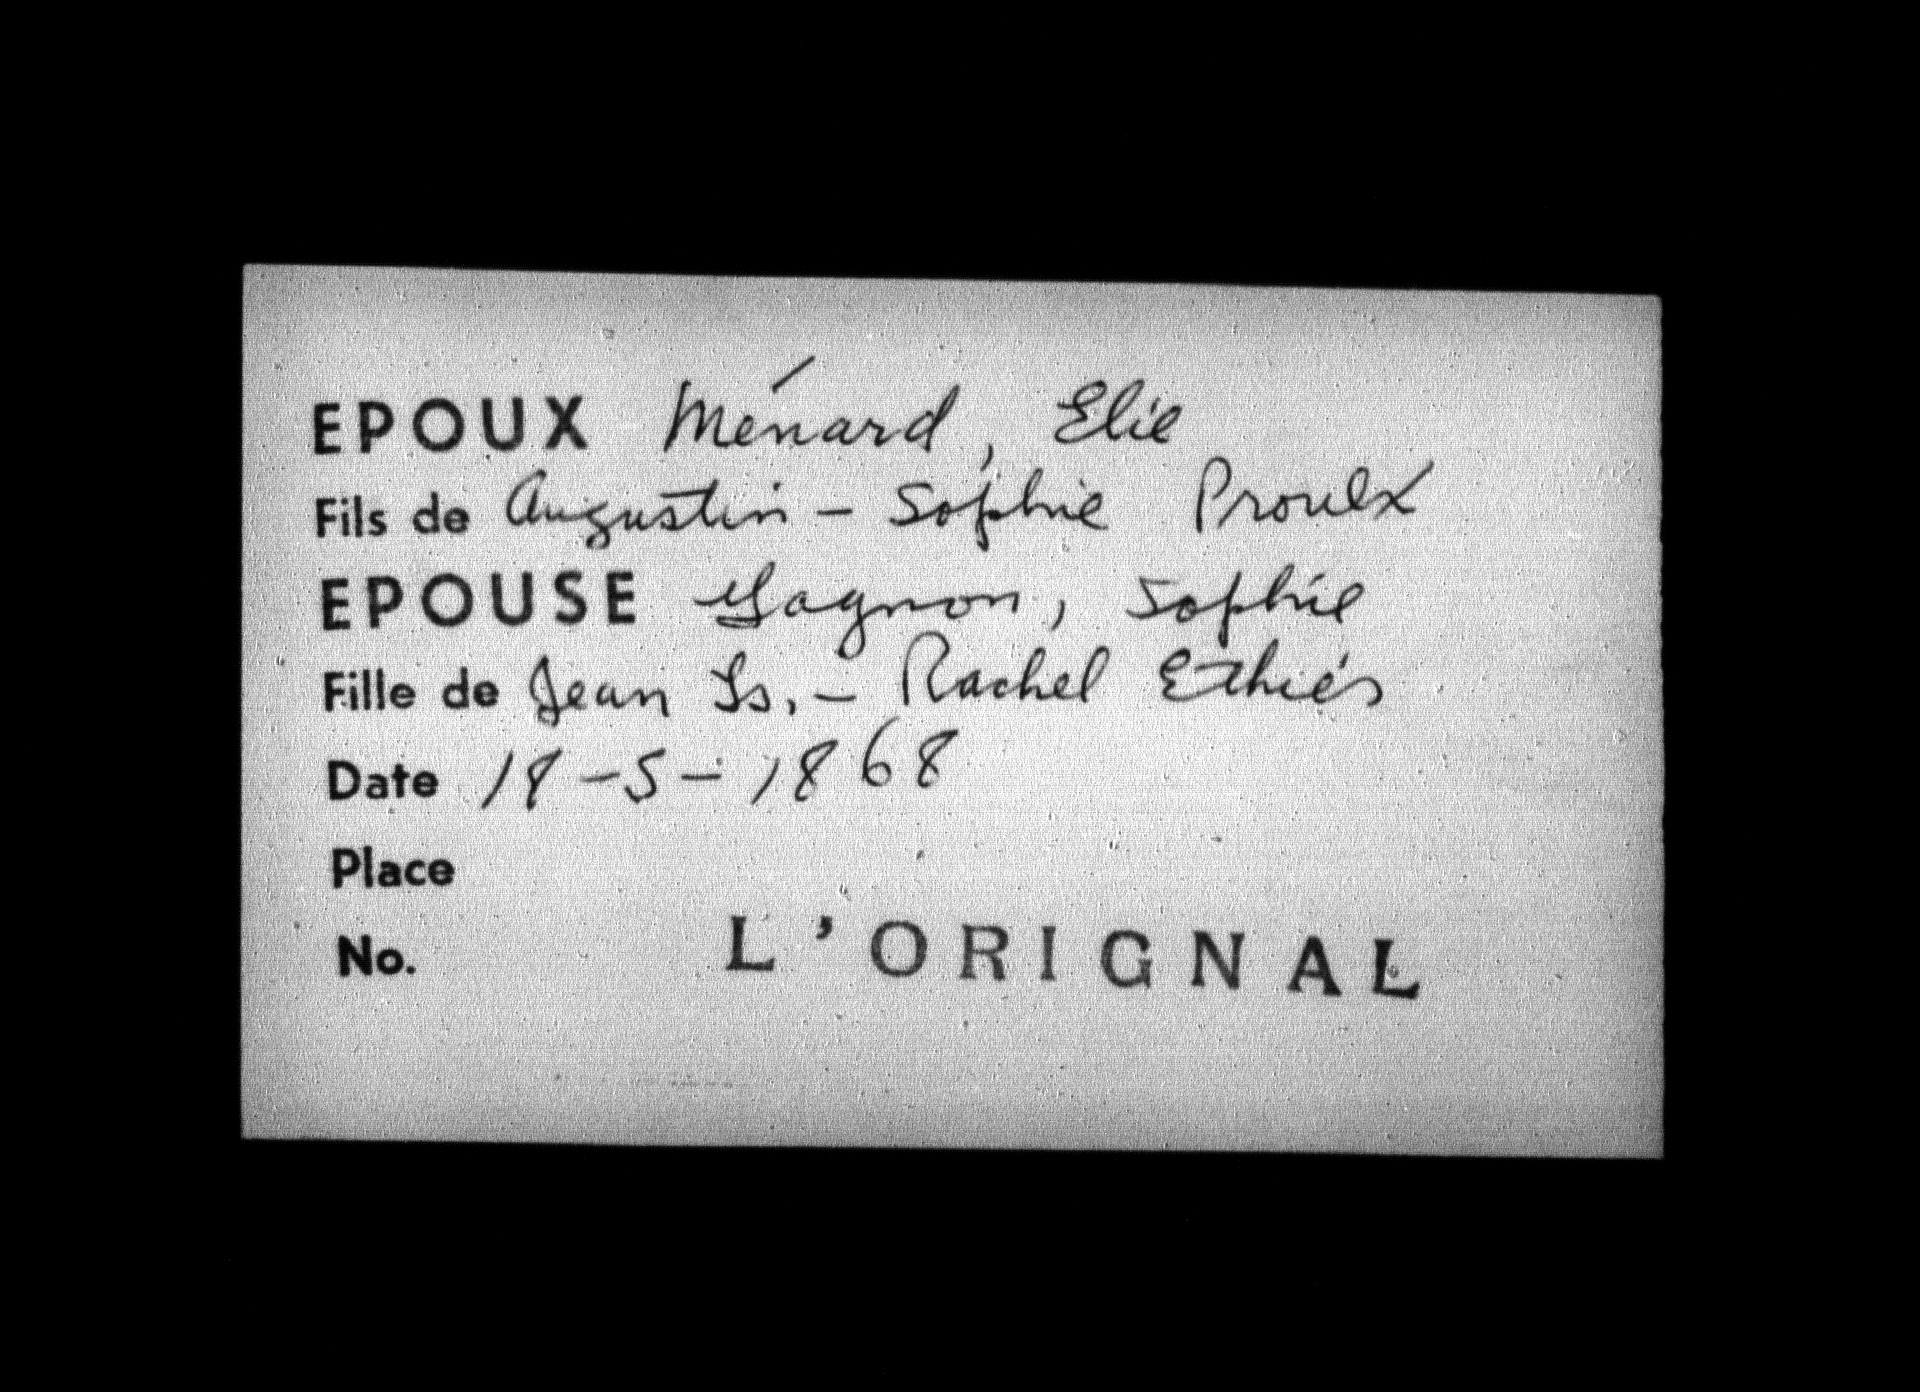 EPOUX Ménard, Elie
Fils de Augustin - Sophie Proulx
EPOUSE Gagnon, Sophie
Fille de Jean Ls. - Rachel Ethiés
Date 18-5-1868
Place
No. L'ORIGNAL